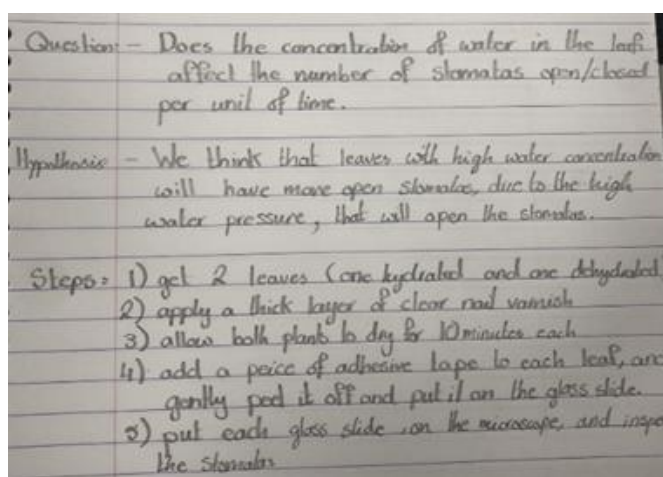 Question:- Does the concentration of water in the leaf
affect the number of stomatas open/closed
per unit of time.
Hypothesis - We think that leaves with high water concentration
will have more open stomatas, due to the high
water pressure, that will open the stomatas.
Steps: 1) get 2 leaves (one hydrated and one dehydrated
2) apply a thick layer of clear nail varnish
3) allow both plants to dry for 10 minutes each
4) add a peice of adhesive tape to each leaf, and
gently peel it off and put it on the glass slide.
5) put each glass slide on the microscope, and inspe
the stomatas